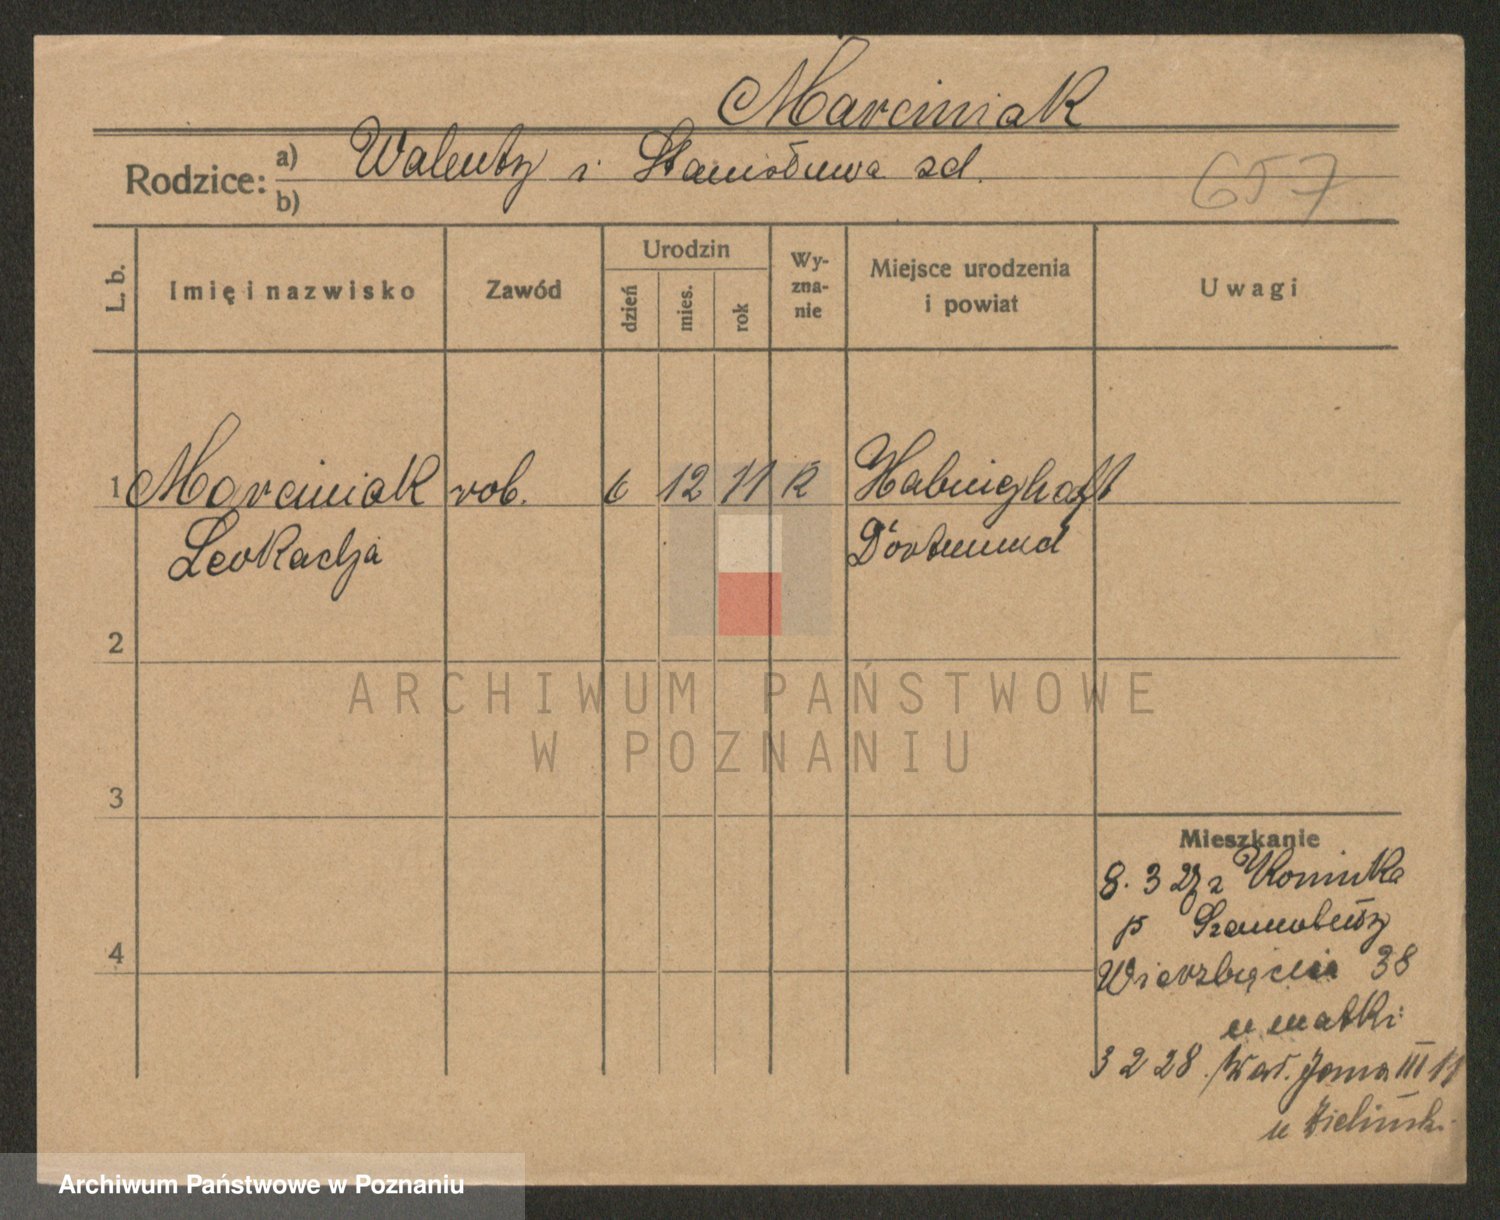 Marciniak
Rodzice: a) Walenty i Stanisława zd.
b)
657
L. b.
Imię i nazwisko
Zawód
Urodzin
dzień
mies.
rok
Wy-
zna-
nie
Miejsce urodzenia
i powiat
Uwagi
1 Marciniak rob. 6 12 11 k Habinghofft
Leokadja Dortmund
2
3
4
Mieszkanie
8. 3 27 z Koninka
p Szamotuły
Wierzbięcice 38
u matki
3 2 28. Wał. Jana III 11
u Zieliński
ARCHIWUM PAŃSTWOWE
W POZNANIU
Archiwum Państwowe w Poznaniu